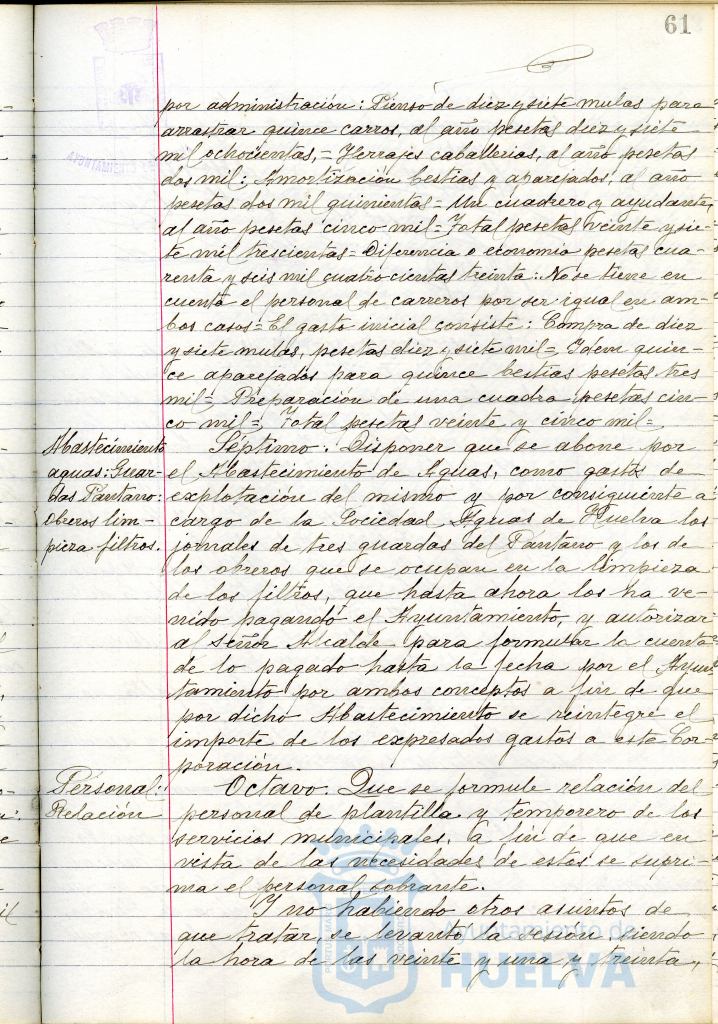 61
por administración: Pienso de diez y siete mulas para
arrastrar quince carros, al año pesetas diez y siete
mil ochocientas,= Herrajes caballerias, al año pesetas
dos mil: Amortización bestias y aparejados, al año
pesetas dos mil quinientas= Un cuadrero y ayudante,
al año pesetas cinco mil= Total pesetas veinte y sie-
te mil trescientas= Diferencia o economia pesetas cua-
renta y seis mil cuatrocientas treinta: No se tiene en
cuenta el personal de carreros por ser igual en am-
bos casos= El gasto inicial consiste: Compra de diez
y siete mulas, pesetas diez y siete mil= Idem quin-
ce aparejados para quince bestias pesetas tres
mil= Preparación de una cuadra pesetas cin-
co mil= Total pesetas veinte y cinco mil=
Abastecimiento
aguas: Guar-
das Pantano:
obreros lim-
pieza filtros.
Séptimo. Disponer que se abone por
el Abastecimiento de Aguas, como gastos de
explotación del mismo y por consiguiente a
cargo de la Sociedad Aguas de Huelva los
jornales de tres guardas del Pantano y los de
los obreros que se ocupan en la limpieza
de los filtros, que hasta ahora los ha ve-
nido pagando el Ayuntamiento, y autorizar
al señor Alcalde para formular la cuenta
de lo pagado hasta la fecha por el Ayun-
tamiento por ambos conceptos a fin de que
por dicho Abastecimiento se reintegre el
importe de los expresados gastos a esta Cor-
poración.
Personal:
Relación
Octavo. Que se formule relación del
personal de plantilla y temporero de los
servicios municipales, a fin de que en
vista de las necesidades de estos se supri-
ma el personal sobrante.
Y no habiendo otros asuntos de
que tratar, se levantó la sesión, siendo
la hora de las veinte y una y treinta,
Ayuntamiento de
HUELVA